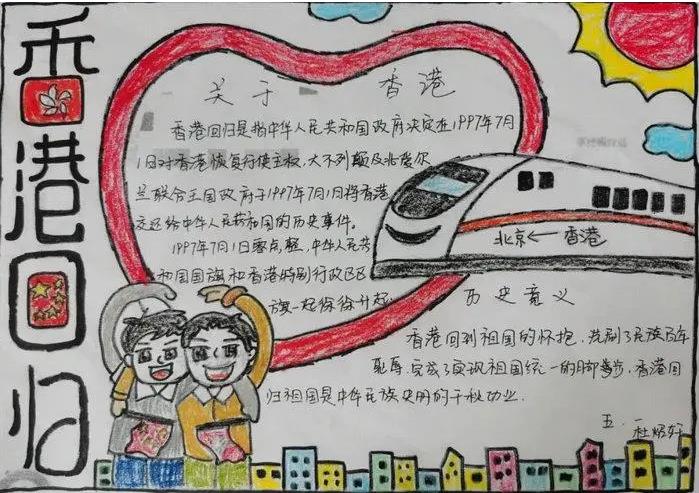 香港回归
关于香港
香港回归是指中华人民共和国政府决定在1997年7月
1日对香港恢复行使主权,大不列颠及北爱尔
兰联合王国政府于1997年7月1日将香港
交还给中华人民共和国的历史事件。
1997年7月1日零点整,中华人民共
和国国旗和香港特别行政区区
旗一起徐徐升起
北京←香港
历史意义
香港回到祖国的怀抱,洗刷了民族百年
耻辱,完成了实现祖国统一的
香港回
归祖国是中华民族史册的千秋功业.
五.一
杜